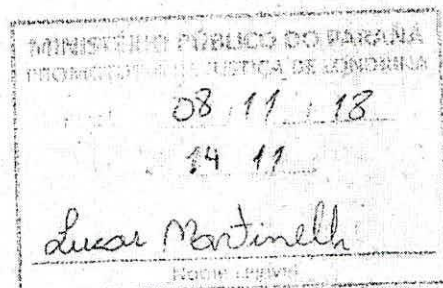 MINISTÉRIO PÚBLICO DO PARANÁ
PROMOTORIA DE JUSTIÇA DE LONDRINA
08 / 11 / 13
14 11
Lucas Martinelli
Nome Legível